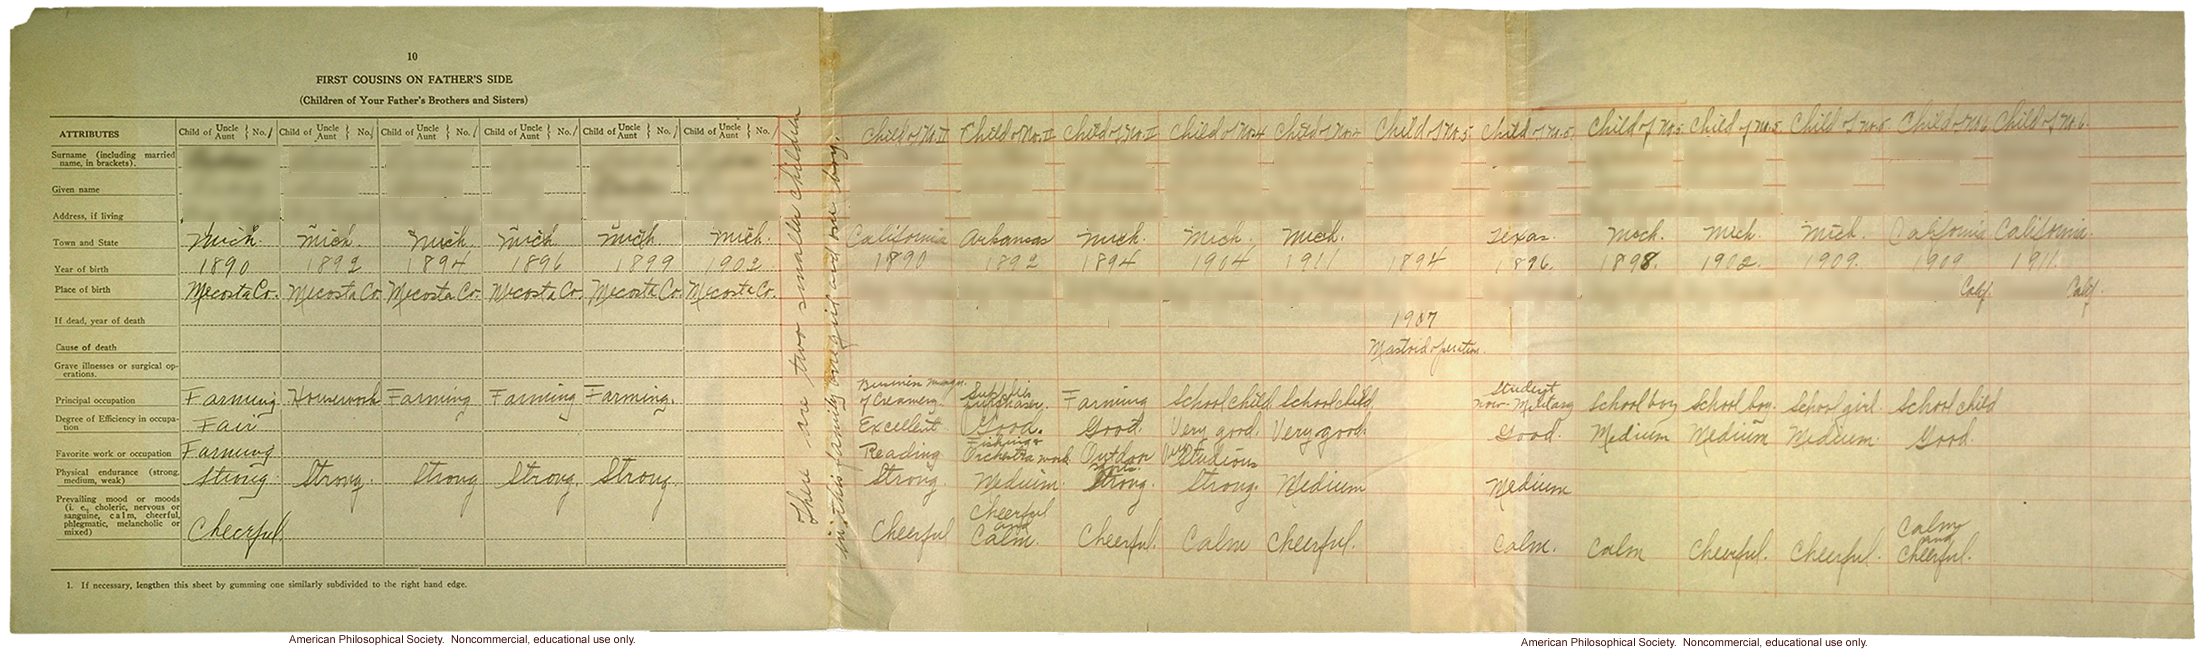 10
FIRST COUSINS ON FATHER'S SIDE
(Children of Your Father's Brothers and Sisters)
ATTRIBUTES Child of Uncle Aunt } No. 1 Child of Uncle Aunt } No. 1 Child of Uncle Aunt } No. 1 Child of Uncle Aunt } No. 1 Child of Uncle Aunt } No. 1 Child of Uncle Aunt } No. 1 Child of No. II Child of No. II Child of No. II Child of No 4 Child of No. 4 Child of No. 5 Child of No. 5. Child of No. 5 Child of No. 5 Child of No. 5 Child of No. 6 Child of No. 6.
Surname (including married name, in brackets).
Given name
Address, if living
Town and State Mich. Mich. Mich. Mich Mich. Mich. California Arkansas Mich. Mich. Mich. Texas. Mich. Mich. Mich. California California.
Year of birth 1890 1892 1894 1896 1899 1902 1890 1892 1894 1904 1911 1894 1896. 1898. 1902. 1909. 1909 1911.
Place of birth Mecosta Co. Mecosta Co. Mecosta Co. Mecosta Co. Mecosta Co. Mecosta Co. Calif. Calif.
If dead, year of death 1907
Cause of death Mastoid operation.
Grave illnesses or surgical operations.
Principal occupation Farming Housework Farming Farming Farming. Business manager of Creamery. Supplies purchaser. Farming School child School child. Student now-Military School boy School boy. School girl. School child
Degree of Efficiency in occupation Fair Excellent Good. Good. Very good. Very good. Good. Medium Medium Medium. Good.
Favorite work or occupation Farming Reading Fishing & Orchestra work. Outdoor sports. Very Studious
Physical endurance (strong, medium, weak) Strong. Strong. Strong Strong. Strong. Strong. Medium. Strong. Strong. Medium Medium
Prevailing mood or moods (i. e., choleric, nervous or sanguine, calm, cheerful, phlegmatic, melancholic or mixed) Cheerful. Cheerful Cheerful and Calm. Cheerful. Calm Cheerful. Calm. Calm Cheerful. Cheerful. Calm and Cheerful.
There are two smaller children
in this family one girl and one boy.
1. If necessary, lengthen this sheet by gumming one similarly subdivided to the right hand edge.
American Philosophical Society. Noncommercial, educational use only.
American Philosophical Society. Noncommercial, educational use only.